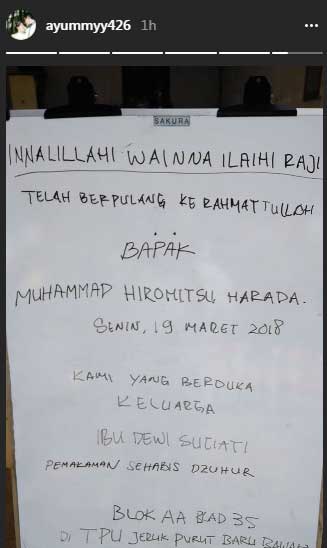 ayummyy426 1h
SAKURA
INNALILLAHI WAINNA ILAIHI RAJI
TELAH BERPULANG KE RAHMATTULLOH
BAPAK
MUHAMMAD HIROMITSU HARADA.
SENIN, 19 MARET 2018
KAMI YANG BERDUKA
KELUARGA
IBU DEWI SUCIATI
PEMAKAMAN SEHABIS DZUHUR
BLOK AA BLAD 35
DI TPU JERUK PURUT BARU BAWAH